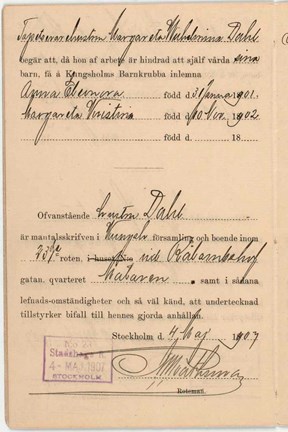 Tapetserarehustrun Margareta Dahl
begär att, då hon af arbete är hindrad att själf vårda sina
barn, få å Kungsholms Barnkrubba inlemna
Anna Eleonora född d. Januari 1901.
Margareta Kristina född d. 10 Nov. 1902.
född d. 18
Ofvanstående hustru Dahl
är mantalsskrifven i Kungsh. församling och boende inom
roten, i huset vid Rålambshofs
gatan, qvarteret Mälaren, samt i sådana
lefnads-omständigheter och så väl känd, att undertecknad
tillstyrker bifall till hennes gjorda anhållan.
Stockholm d. 4 Maj 1907
4 - MAJ. 1907
STOCKHOLM
Roteman.